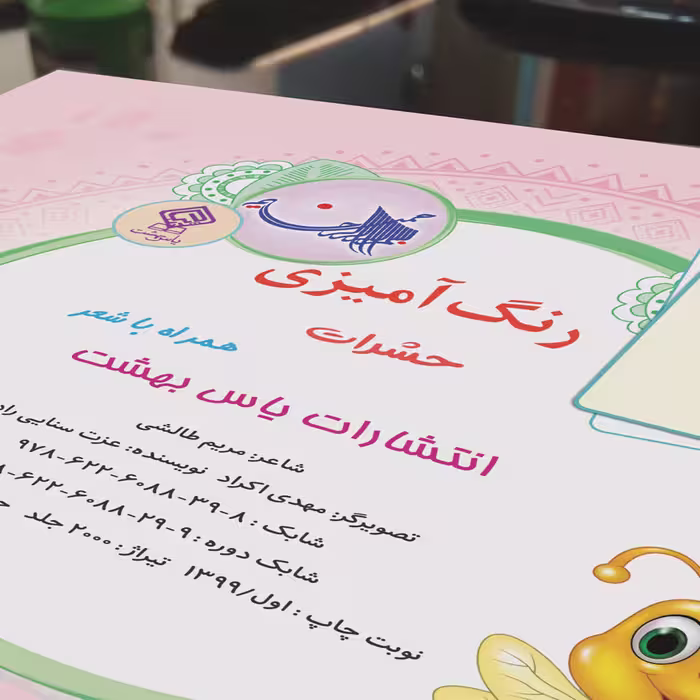 بسم الله الرحمن الرحیم
یاس بهشت
رنگ آمیزی
حشرات
همراه با شعر
انتشارات یاس بهشت
شاعر: مریم طالشی
تصویرگر: مهدی اکراد نویسنده: عزت سنایی
شابک: ۸-۳۹-۶۰۸۸-۶۲۲-۹۷۸
شابک دوره: ۹-۲۹-۶۰۸۸-۶۲۲-
نوبت چاپ: اول/۱۳۹۹ تیراژ: ۲۰۰۰ جلد